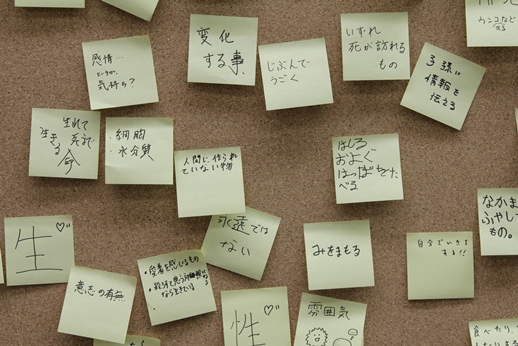 ウンコなど
する
感情…
気持ち?
変化
する事、
じぶんで
うごく
いずれ
死が訪れる
もの
子孫に
情報を
伝える
生れて
死ぬ
生きる
命
細胞
水分質
人間に作られ
ていない物
はしる
およぐ
はっぱをた
べる
なかま
ふやして
もの。
生♡
意志の有無
永遠では
ない
みをまもる
自分でいきを
する!!
・愛着を感じるもの
なら生きている
性♡
雰囲気
食べたり、